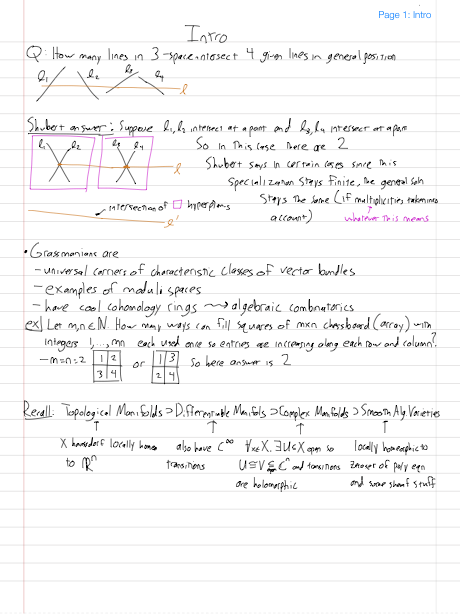 Page 1: Intro
Intro
Q: How many lines in 3-space intersect 4 given lines in general position
l₁ l₂ l₃ l₄ l
Shubert answer: Suppose l₁, l₂ intersect at a point and l₃, l₄ intersect at a point
l₁ l₂ l₃ l₄ l
So in this case there are 2
Shubert says in certain cases since this
Specialization stays finite, the general soln
Stays the same (if multiplicities taken into
account)
whatever this means
intersection of □ hyperplanes
l'
• Grassmanians are
- universal carriers of characteristic classes of vector bundles
- examples of moduli spaces
- have cool cohomology rings ⟿ algebraic combinatorics
ex) Let m,n ∈ ℕ. How many ways can fill squares of m×n chessboard (array) with
integers 1,..., mn each used once so entries are increasing along each row and column?
- m=n=2 1 2 3 4 or 1 3 2 4 so here answer is 2
Recall: Topological Manifolds ⊃ Differentiable Manifols ⊃ Complex Manifolds ⊃ Smooth Alg. Varieties
↑ ↑ ↑ ↑
X hausdorf locally homeo
to ℝⁿ
also have C^∞
transitions
∀x∈X, ∃U⊆X open so
U ≅ V ⊆ ℂⁿ and transitions
are holomorphic
locally homeomorphic to
zeroset of poly eqn
and some sheaf stuff